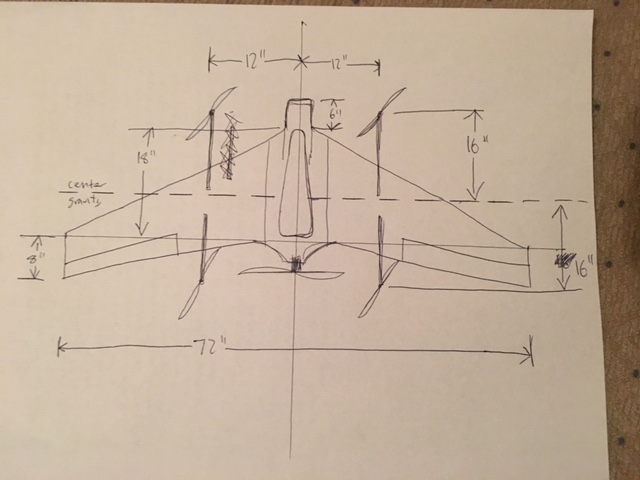 8"
center
gravity
18"
72"
12"
12"
6"
16"
16"